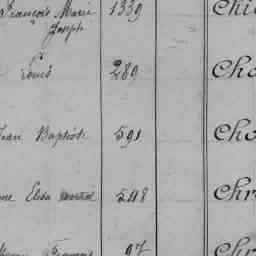 François Marie 1339 Chi
Joseph
Louis 289 Cho
Jean Baptiste 591 Cho
Elisa 548 Chr
François 97 Chr